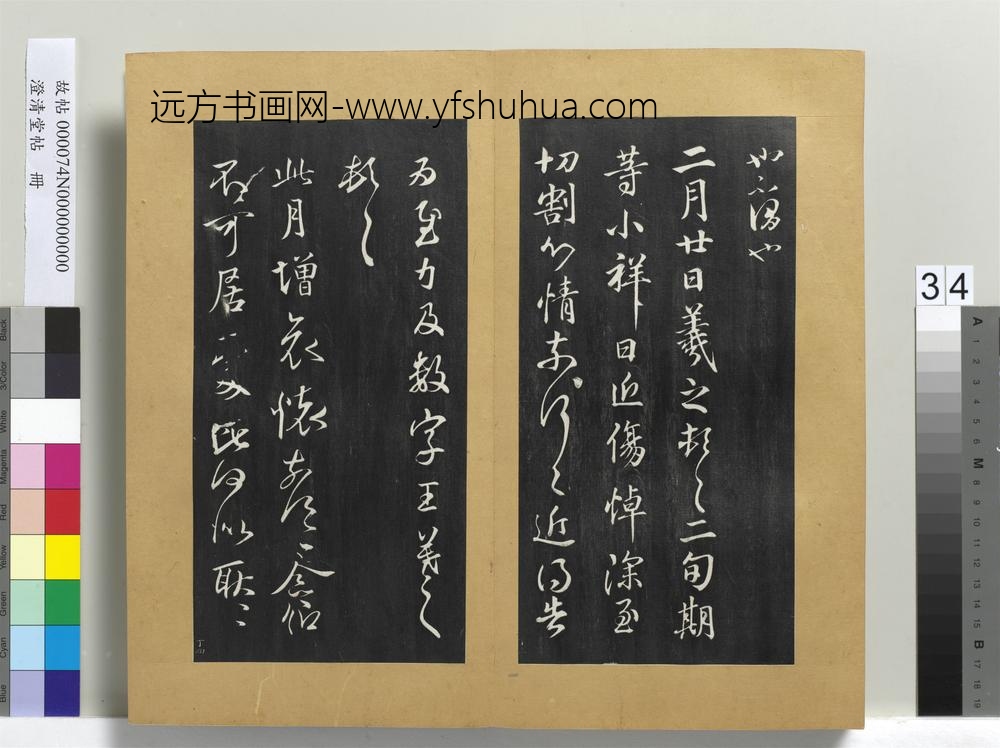 远方书画网-www.yfshuhua.com
也
二月廿日羲之頓首二旬期
等小祥日近傷悼深至
切割心情奈何々近得告
為至力及數字王羲之
頓首
此月增哀懷奈何念
不可居處比何似耿々
丁
34
故帖 000074N000000000
澄清堂帖 冊
Black
3/Color
White
Magenta
Red
Yellow
Green
Cyan
Blue
A
1
2
3
4
5
6
M
8
9
10
11
12
13
14
15
B
17
18
19